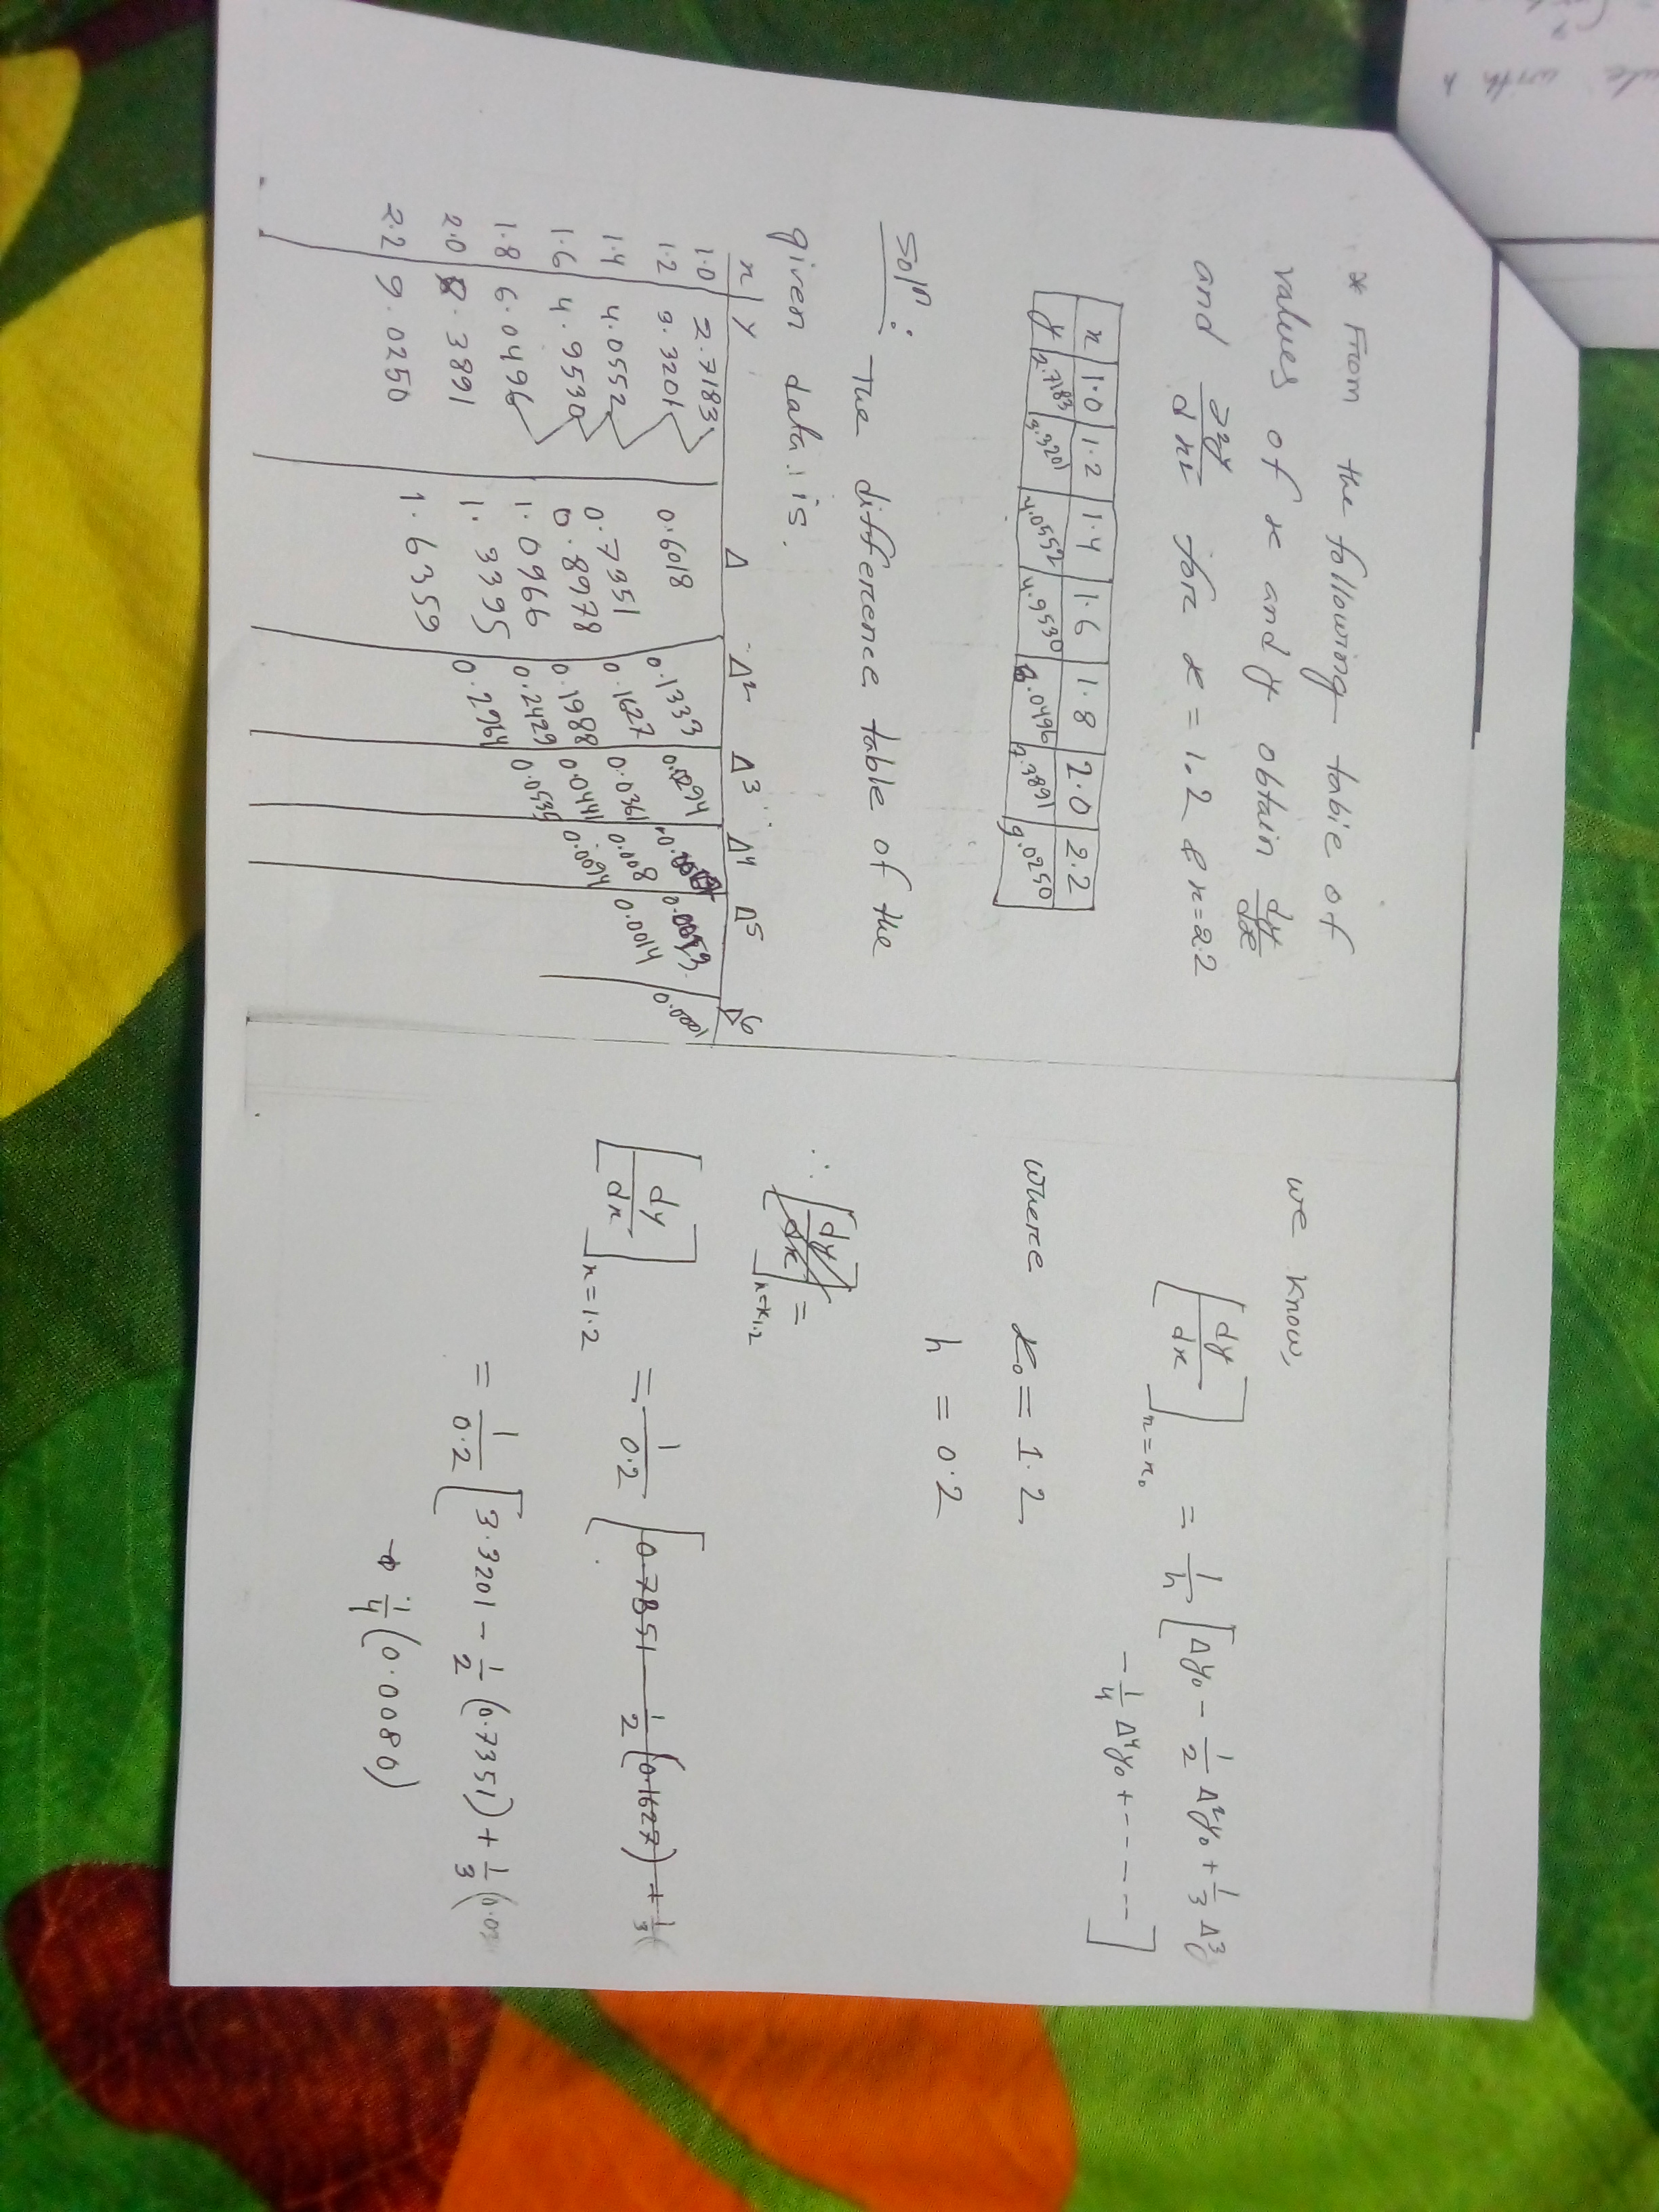 * From the following tabie of
values of x and y obtain dy/dx
and ∂²y/dx² for x = 1.2 & x=2.2
x 1.0 1.2 1.4 1.6 1.8 2.0 2.2
y 2.7183 3.3201 4.0552 4.9530 6.0496 7.3891 9.0250
Solⁿ:
The difference table of the
given data is.
x y Δ Δ² Δ³ Δ⁴ Δ⁵ Δ6
1.0 2.7183
0.6018 0.1333 0.0294 0.0001
1.2 3.3201
0.7351 0.1627 0.0361 0.008 0.0014
1.4 4.0552
0.8978 0.1988 0.0441 0.0094
1.6 4.9530
1.0966 0.2429 0.0535
1.8 6.0496
1.3395 0.2964
2.0 .3891
1.6359
2.2 9.0250
we know,
[dy/dx] x=x₀ = 1/h [Δy₀ - 1/2 Δ²y₀ + 1/3 Δ³y
- 1/4 Δ⁴y₀ + ------]
where x₀ = 1.2
h = 0.2
∴ [dy/dx] x=x1.2 =
[dy/dx] x=1.2 = 1/0.2 [0.7351 1/2 (0.1627) + 1/3 (
= 1/0.2 [3.3201 - 1/2 (0.7351) + 1/3 (0.03
1/4 (0.0080)